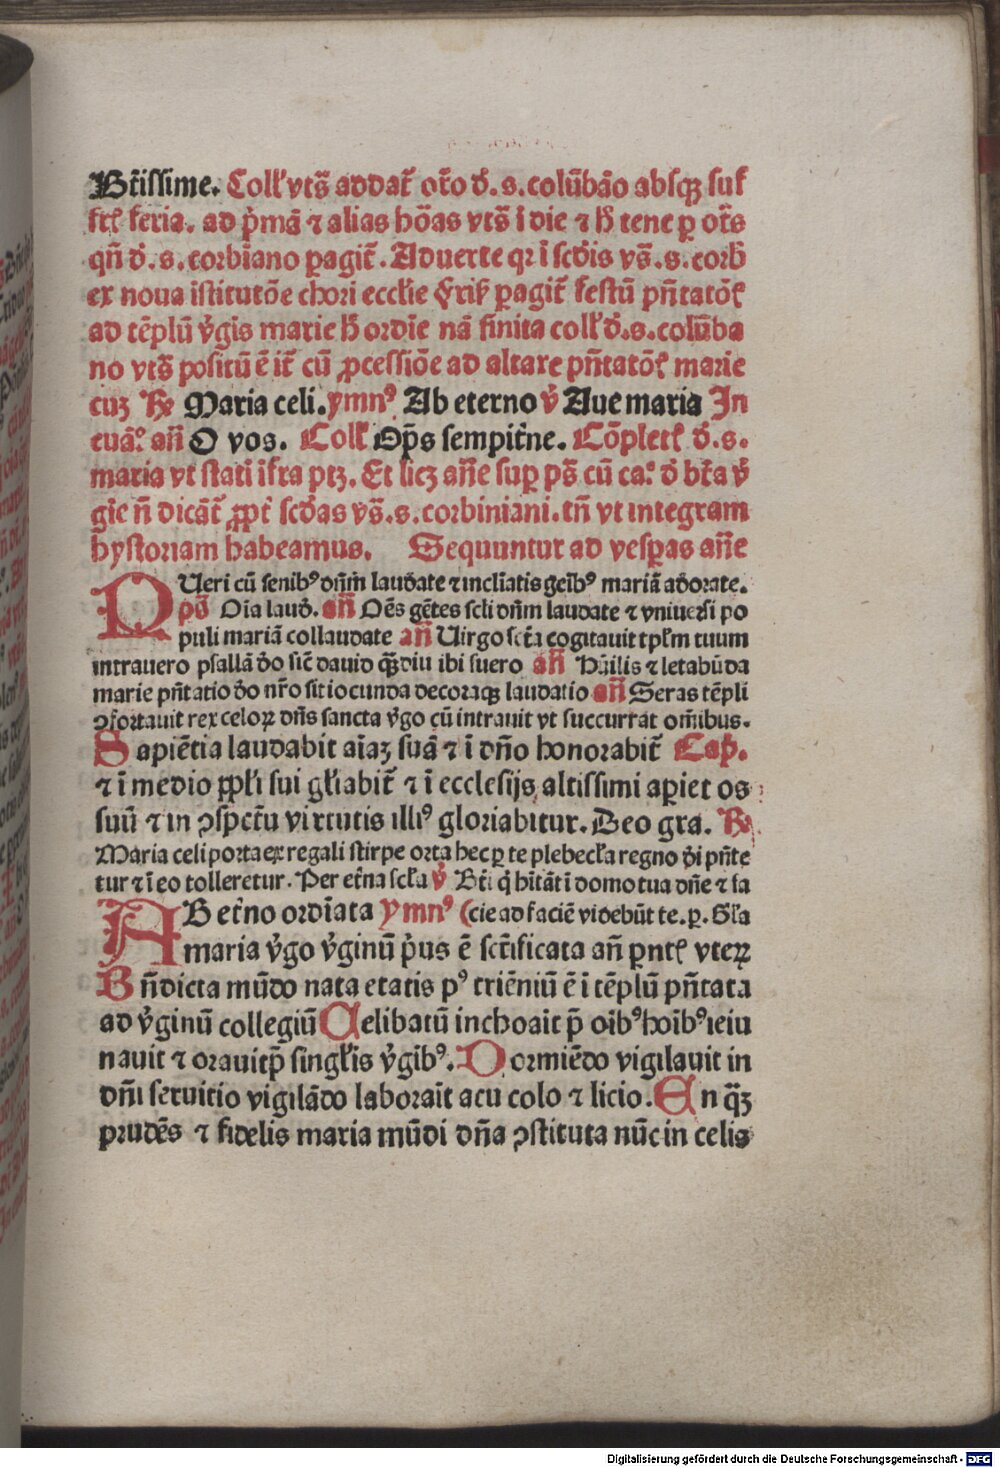 Btissime. Coll' vts̄ addat̄ or̄o d̄. s. colūbāo absqꝫ suf
frī feria. ad p̄mā ⁊ alias hōas vts̄ ī die ⁊ h̄ tene ꝑ ot̄s
qn̄ d̄. s. corbīano ꝑagit̄. Aduerte qr ī scd̄is vs̄. s. corb̄
ex noua īstitutōe chori eccl'ie Fris̄ ꝑagit̄ festū pn̄tatōꝭ
ad tēplū v̄gis marie h̄ ordīe nā finita coll' d̄. s. colūba
no vts̄ positū ē it̄ cū ꝓcessiōe ad altare pn̄tatōꝭ marie
cuꝫ ℟ Maria celi. ymnꝰ Ab eterno v̄ Aue maria In
euā. an̄ O vos. Coll' Op̄s sempit̄ne. Cōpletꝭ d̄. s.
maria vt stati īfra ptꝫ. Et licꝫ an̄e suꝑ ps̄ cū ca. d̄ bt̄a v̄
gīe n̄ dicāt̄ ꝓpt̄ scd̄as vs̄. s. corbiniani. tn̄ vt integram
hystoriam habeamus. Sequuntur ad vesꝑas an̄e
PUeri cū senibꝰ dn̄m laud̄ate ⁊ inclīatis geībꝰ mariā ad̄orate.
ps̄ Oīa laud̄. an̄ Oēs gētes scl̄i dn̄m laudate ⁊ vniuersi po
puli mariā collaudate an̄ Uirgo sct̄a cogitauit tpl̄m tuum
intrauero psallā d̄o sic̄ dauid qꝫdiu ibi fuero an̄ Hūilis ⁊ letabūda
marie pn̄tatio d̄o nr̄o sit iocunda decoraqꝫ laudatio an̄ Seras tēpli
ꝯfortauit rex celoꝝ dn̄s sancta v̄go cū intrauit vt succurrat om̄ibus.
Sapiētia laudabit aīaꝫ suā ⁊ ī dn̄o honorabit̄ Cap̄.
⁊ ī medio ppl'i sui gl'iabit̄ ⁊ ī ecclesijs altissimi aꝑiet os
suū ⁊ in ꝯspct̄u virtutis illiꝰ gloriabitur. Deo gra. ℟
Maria celi porta ex regali stirpe orta hec ꝑ te plebecl'a regno d̄i pn̄te
tur ⁊ ī eo tolleretur. Per et̄na scl'a v̄ Bt̄i q̄ hītāt ī domo tua dn̄e ⁊ sa
AB et̄no ordīata ymnꝰ (cie ad faciē videbūt te. ꝑ. Gl'a
maria v̄go v̄ginū p̄us ē sct̄ificata an̄ ꝑntꝭ vteꝝ
Bn̄dicta mūdo nata etatis pꝰ triēniū ē ī tēplū pn̄tata
ad v̄ginū collegiū Celibatū inchoait p̄ oībꝰ hoībꝰ ieiu
nauit ⁊ orauit p̄ singl'is v̄gibꝰ. Dormiēdo vigilauit in
dn̄i seruitio vigilādo laborait acu colo ⁊ licio. En qꝫ
prudēs ⁊ fidelis maria mūdi dn̄a ꝯstituta nūc in celis
Digitalisierung gefördert durch die Deutsche Forschungsgemeinschaft - DFG